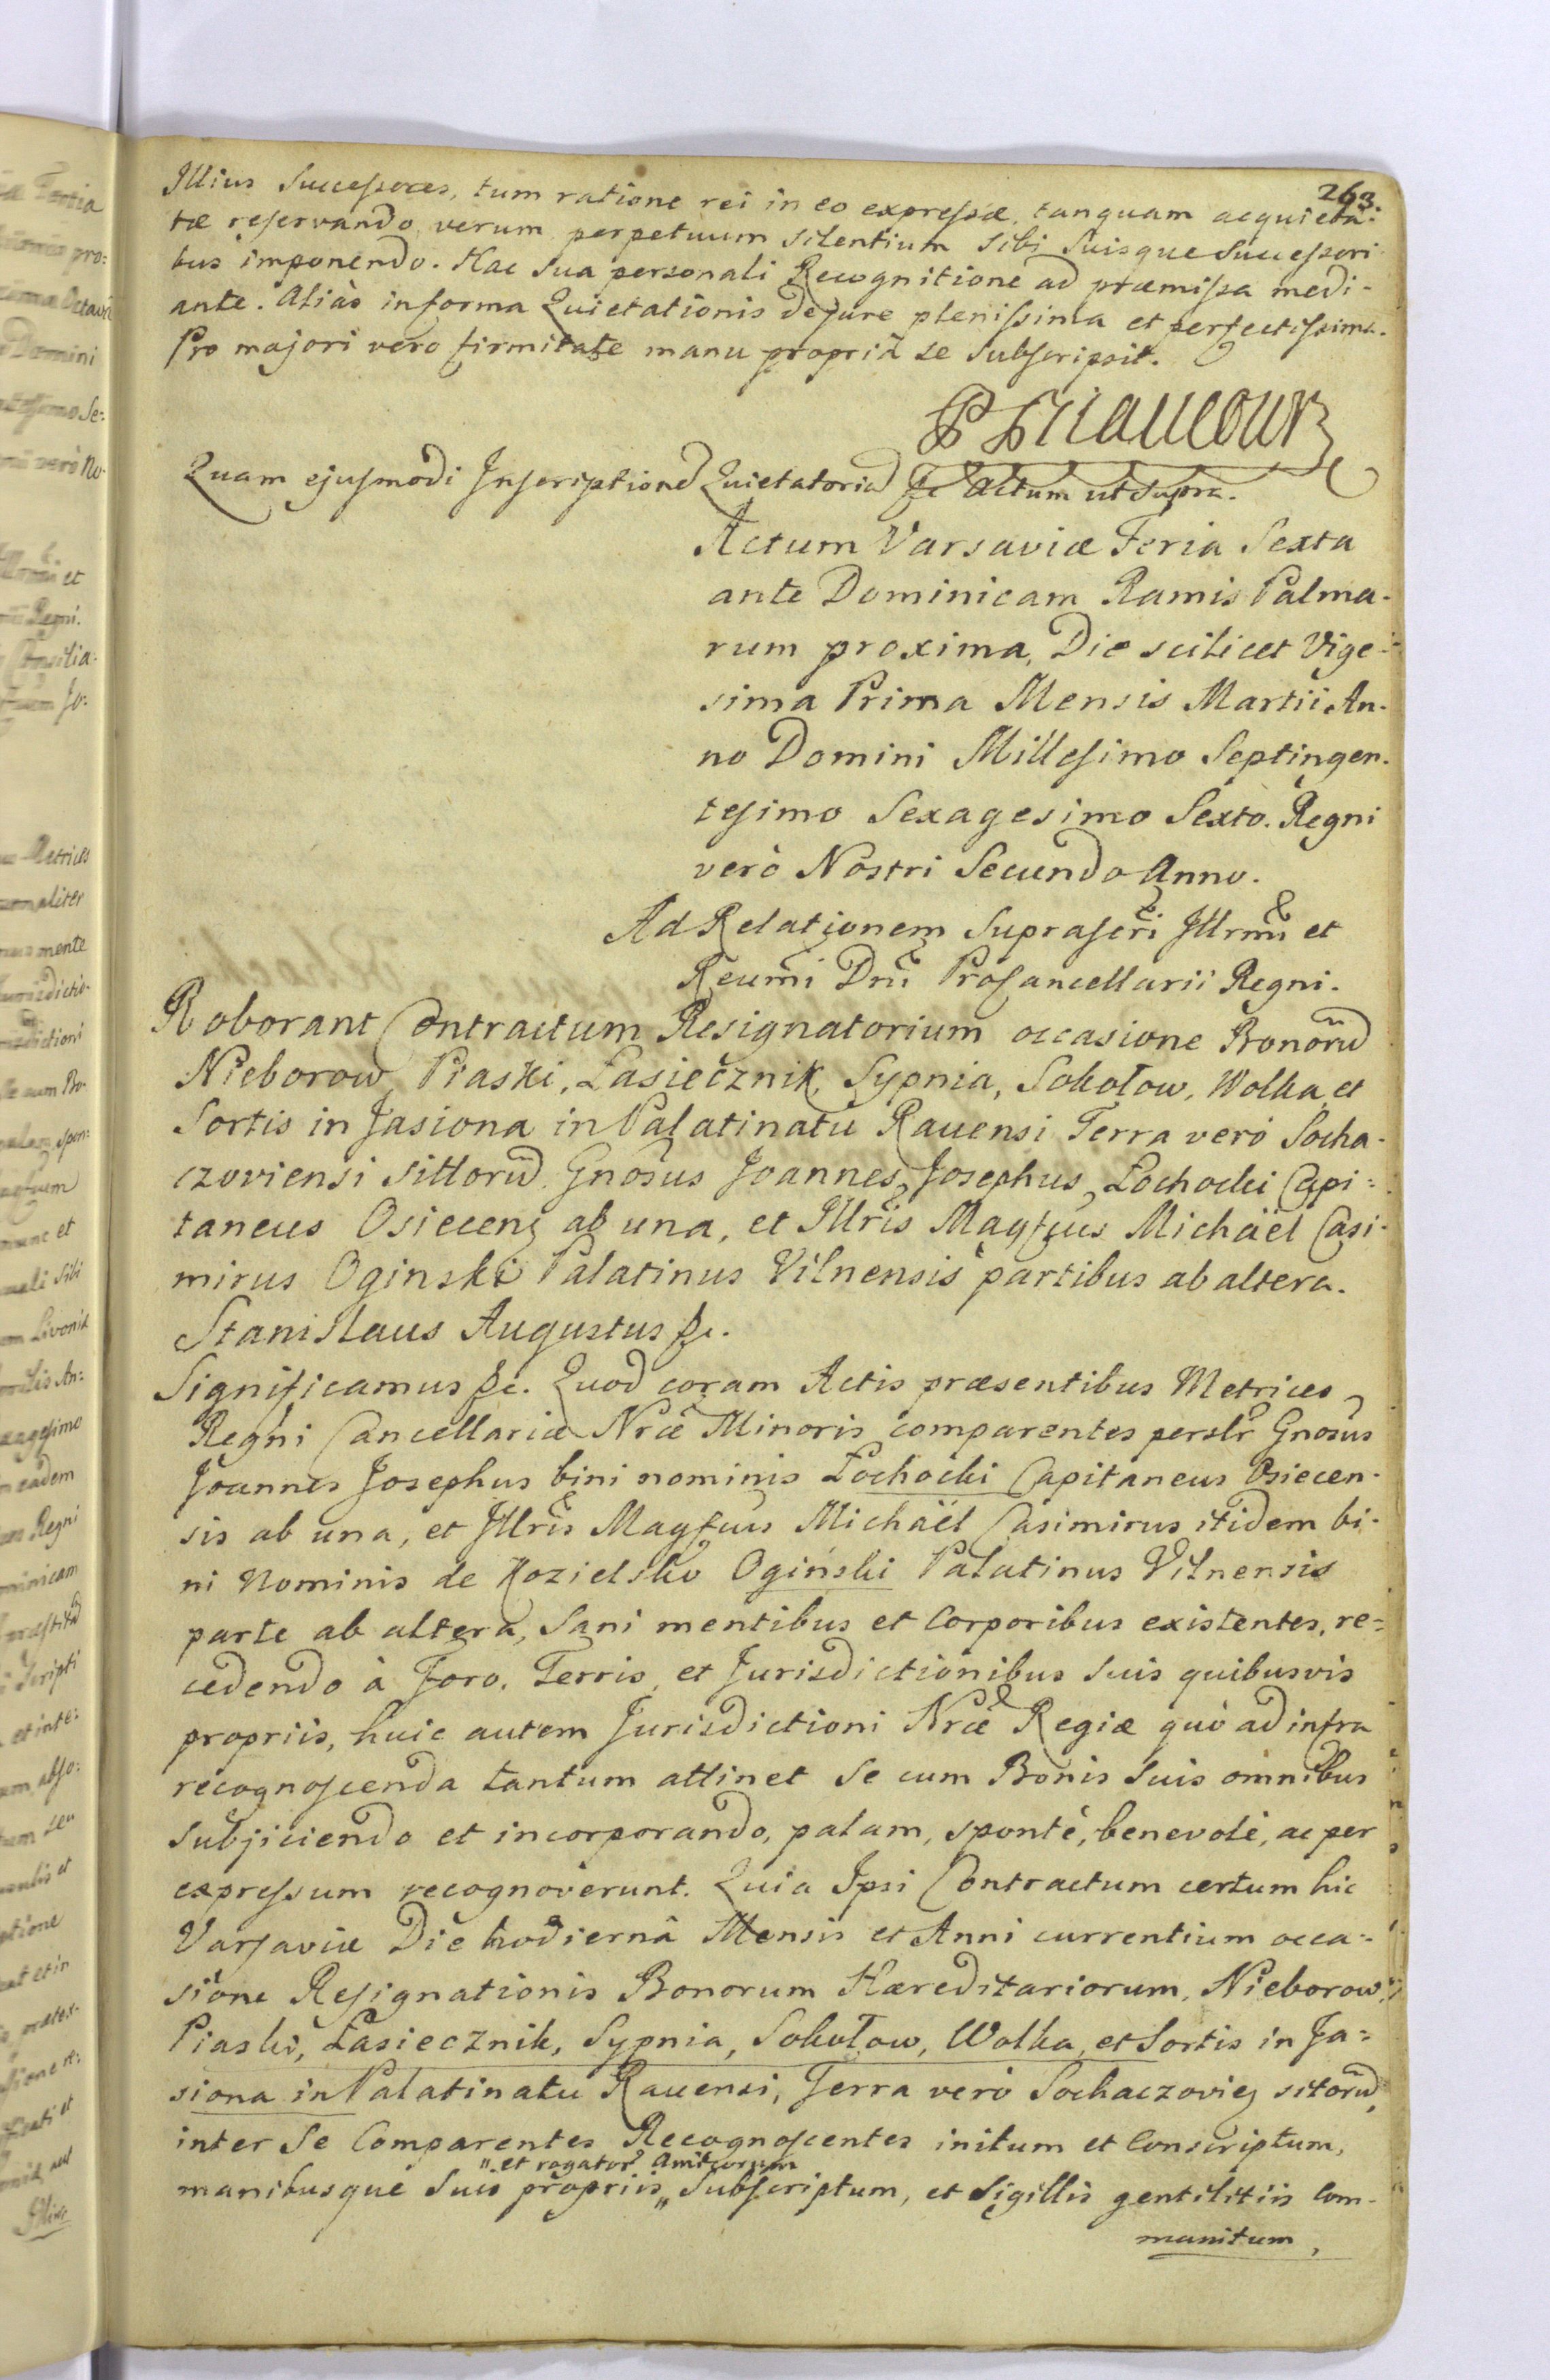 263.
Illius Successores, tum ratione rei in eo expressæ, tanquam acquieta-
tæ reservando, verum perpetuum silentium sibi suisque successori-
bus imponendo. Hac sua personali Recognitione ad præmissa medi-
ante. Aliàs in forma Quietationis de jure plenissima et perfectissima.
Pro majori vero firmitate manu propriâ se subscripsit.
Quam ejusmodi Inscriptionē Quietatoriā &c Actum ut supra.
Actum Varsaviæ Feria Sexta
ante Dominicam Ramis Palma-
rum proxima, Die scilicet Vige-
sima Prima Mensis Martii An-
no Domini Millesimo Septingen-
tesimo Sexagesimo Sexto. Regni
verò Nostri Secundo Anno.
Ad Relationem Suprascri Illrmi et
Reumi Dni Procancellarii Regni.
Roborant Contractum Resignatorium occasione Bonorū
Nieborow, Piaski, Łasiecznik, Sypnia, Sokołow, Wolka, et
Sortis in Jasiona in Palatinatu Ravensi Terra verò Socha-
czoviensi sittorū. Gnosus Joannes Josephus Łochocki Capi-
taneus Osiecens ab una, et Illris Magfcus Michäel Casi-
mirus Oginski Palatinus Vilnensis partibus ab altera.
Stanislaus Augustus &c.
Significamus &c. Quod coram Actis præsentibus Metrices
Regni Cancellariæ Nræ Minoris comparentes perslr Gnosus
Joannes Josephus bini nominis Łochocki Capitaneus Osiecen-
sis ab una, et Illris Magfcus Michäel Casimirus itidem bi-
ni Nominis de Kozielsko Ogiński Palatinus Vilnensis
parte ab altera, Sani mentibus et Corporibus existentes, re-
cedendo à Foro, Terris, et Jurisdictionibus suis quibusvis
propriis, huic autem Jurisdictioni Nræ Regiæ quò ad infra
recognoscenda tantum attinet se cum Bonis suis omnibus
subjiciendo et incorporando, palam, spontè, benevolè, ac per
expressum recognoverunt. Quia Ipsi Contractum certum hic
Varsaviæ Die hodiernâ Mensis et Anni currentium occa-
sione Resignationis Bonorum Hæreditariorum, Nieborow,
Piaski, Łasiecznik, Sypnia, Sokołow, Wolka, et Sortis in Ja-
siona in Palatinatu Ravensi, Terra verò Sochaczovies sitorū,
inter se Comparentes Recognoscentes initum et Conscriptum,
" et rogator Amicorum
manibusque suis propriis " subscriptum, et Sigillis gentilitiis Com-
munitum,